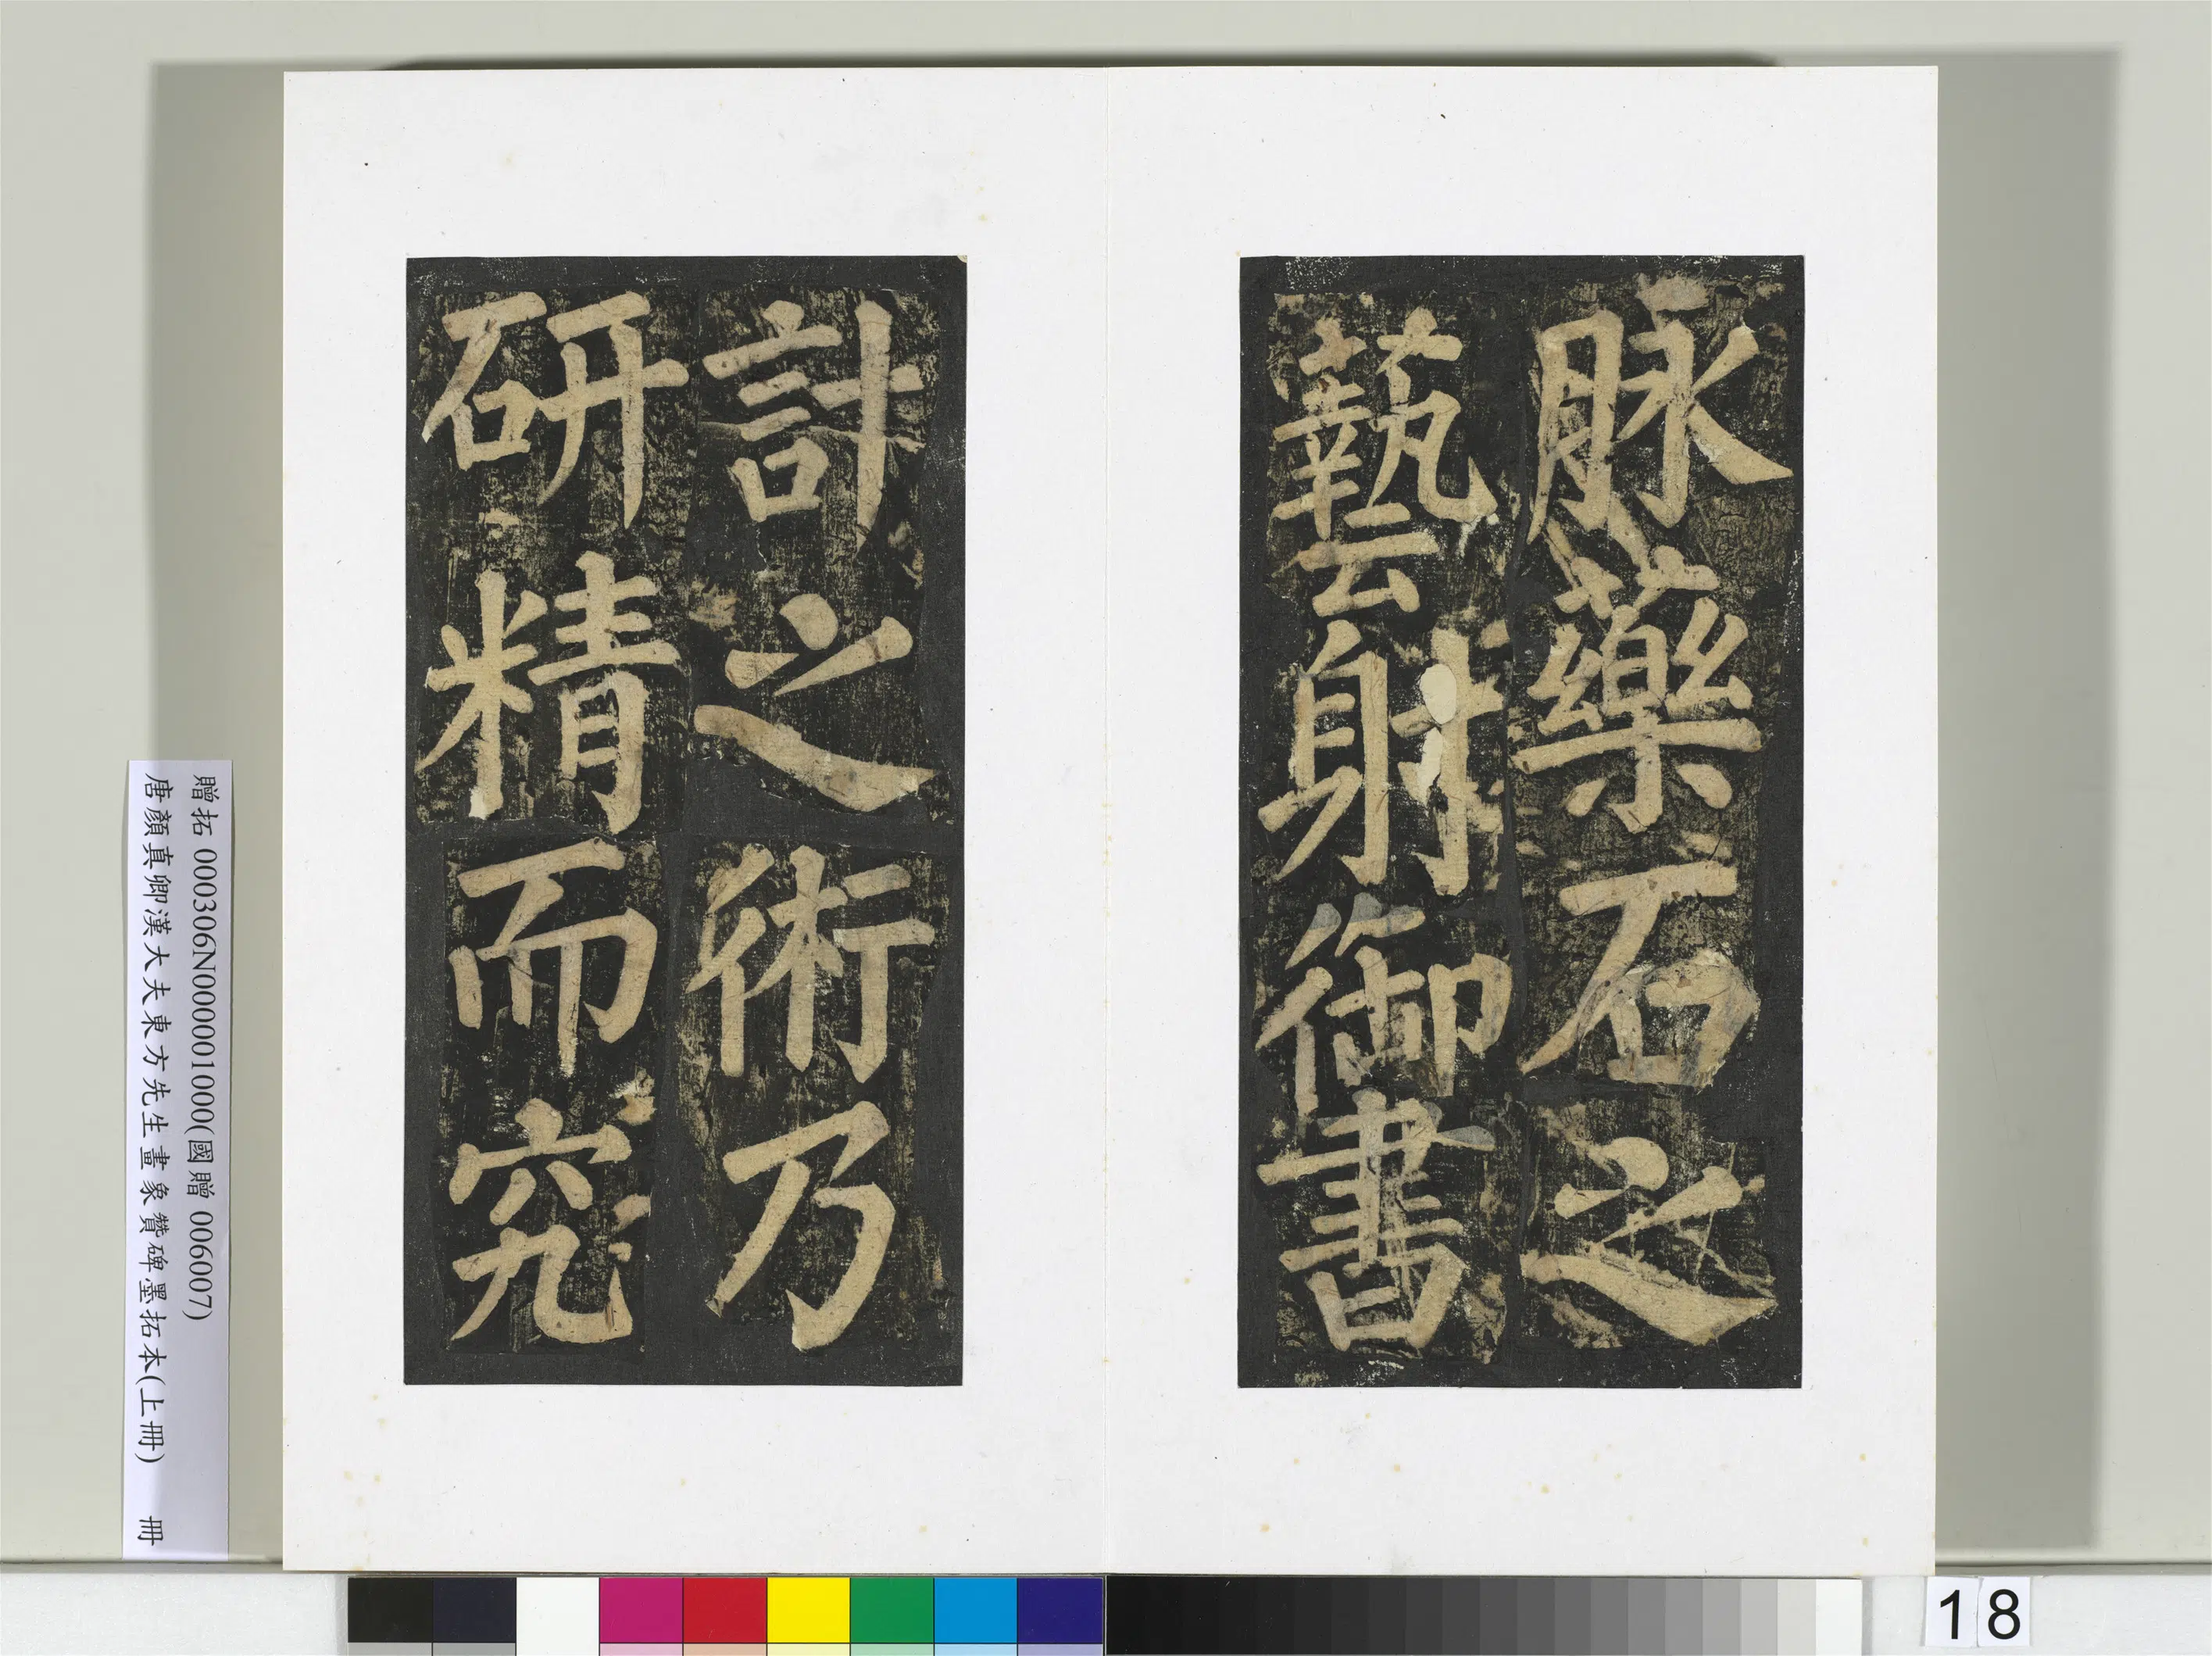 脉藥石之
藝射御書
計之術乃
研精而究
贈拓 000306N000001000(國贈 006007)
唐顏真卿漢大夫東方先生畫象贊碑墨拓本(上冊) 冊
18